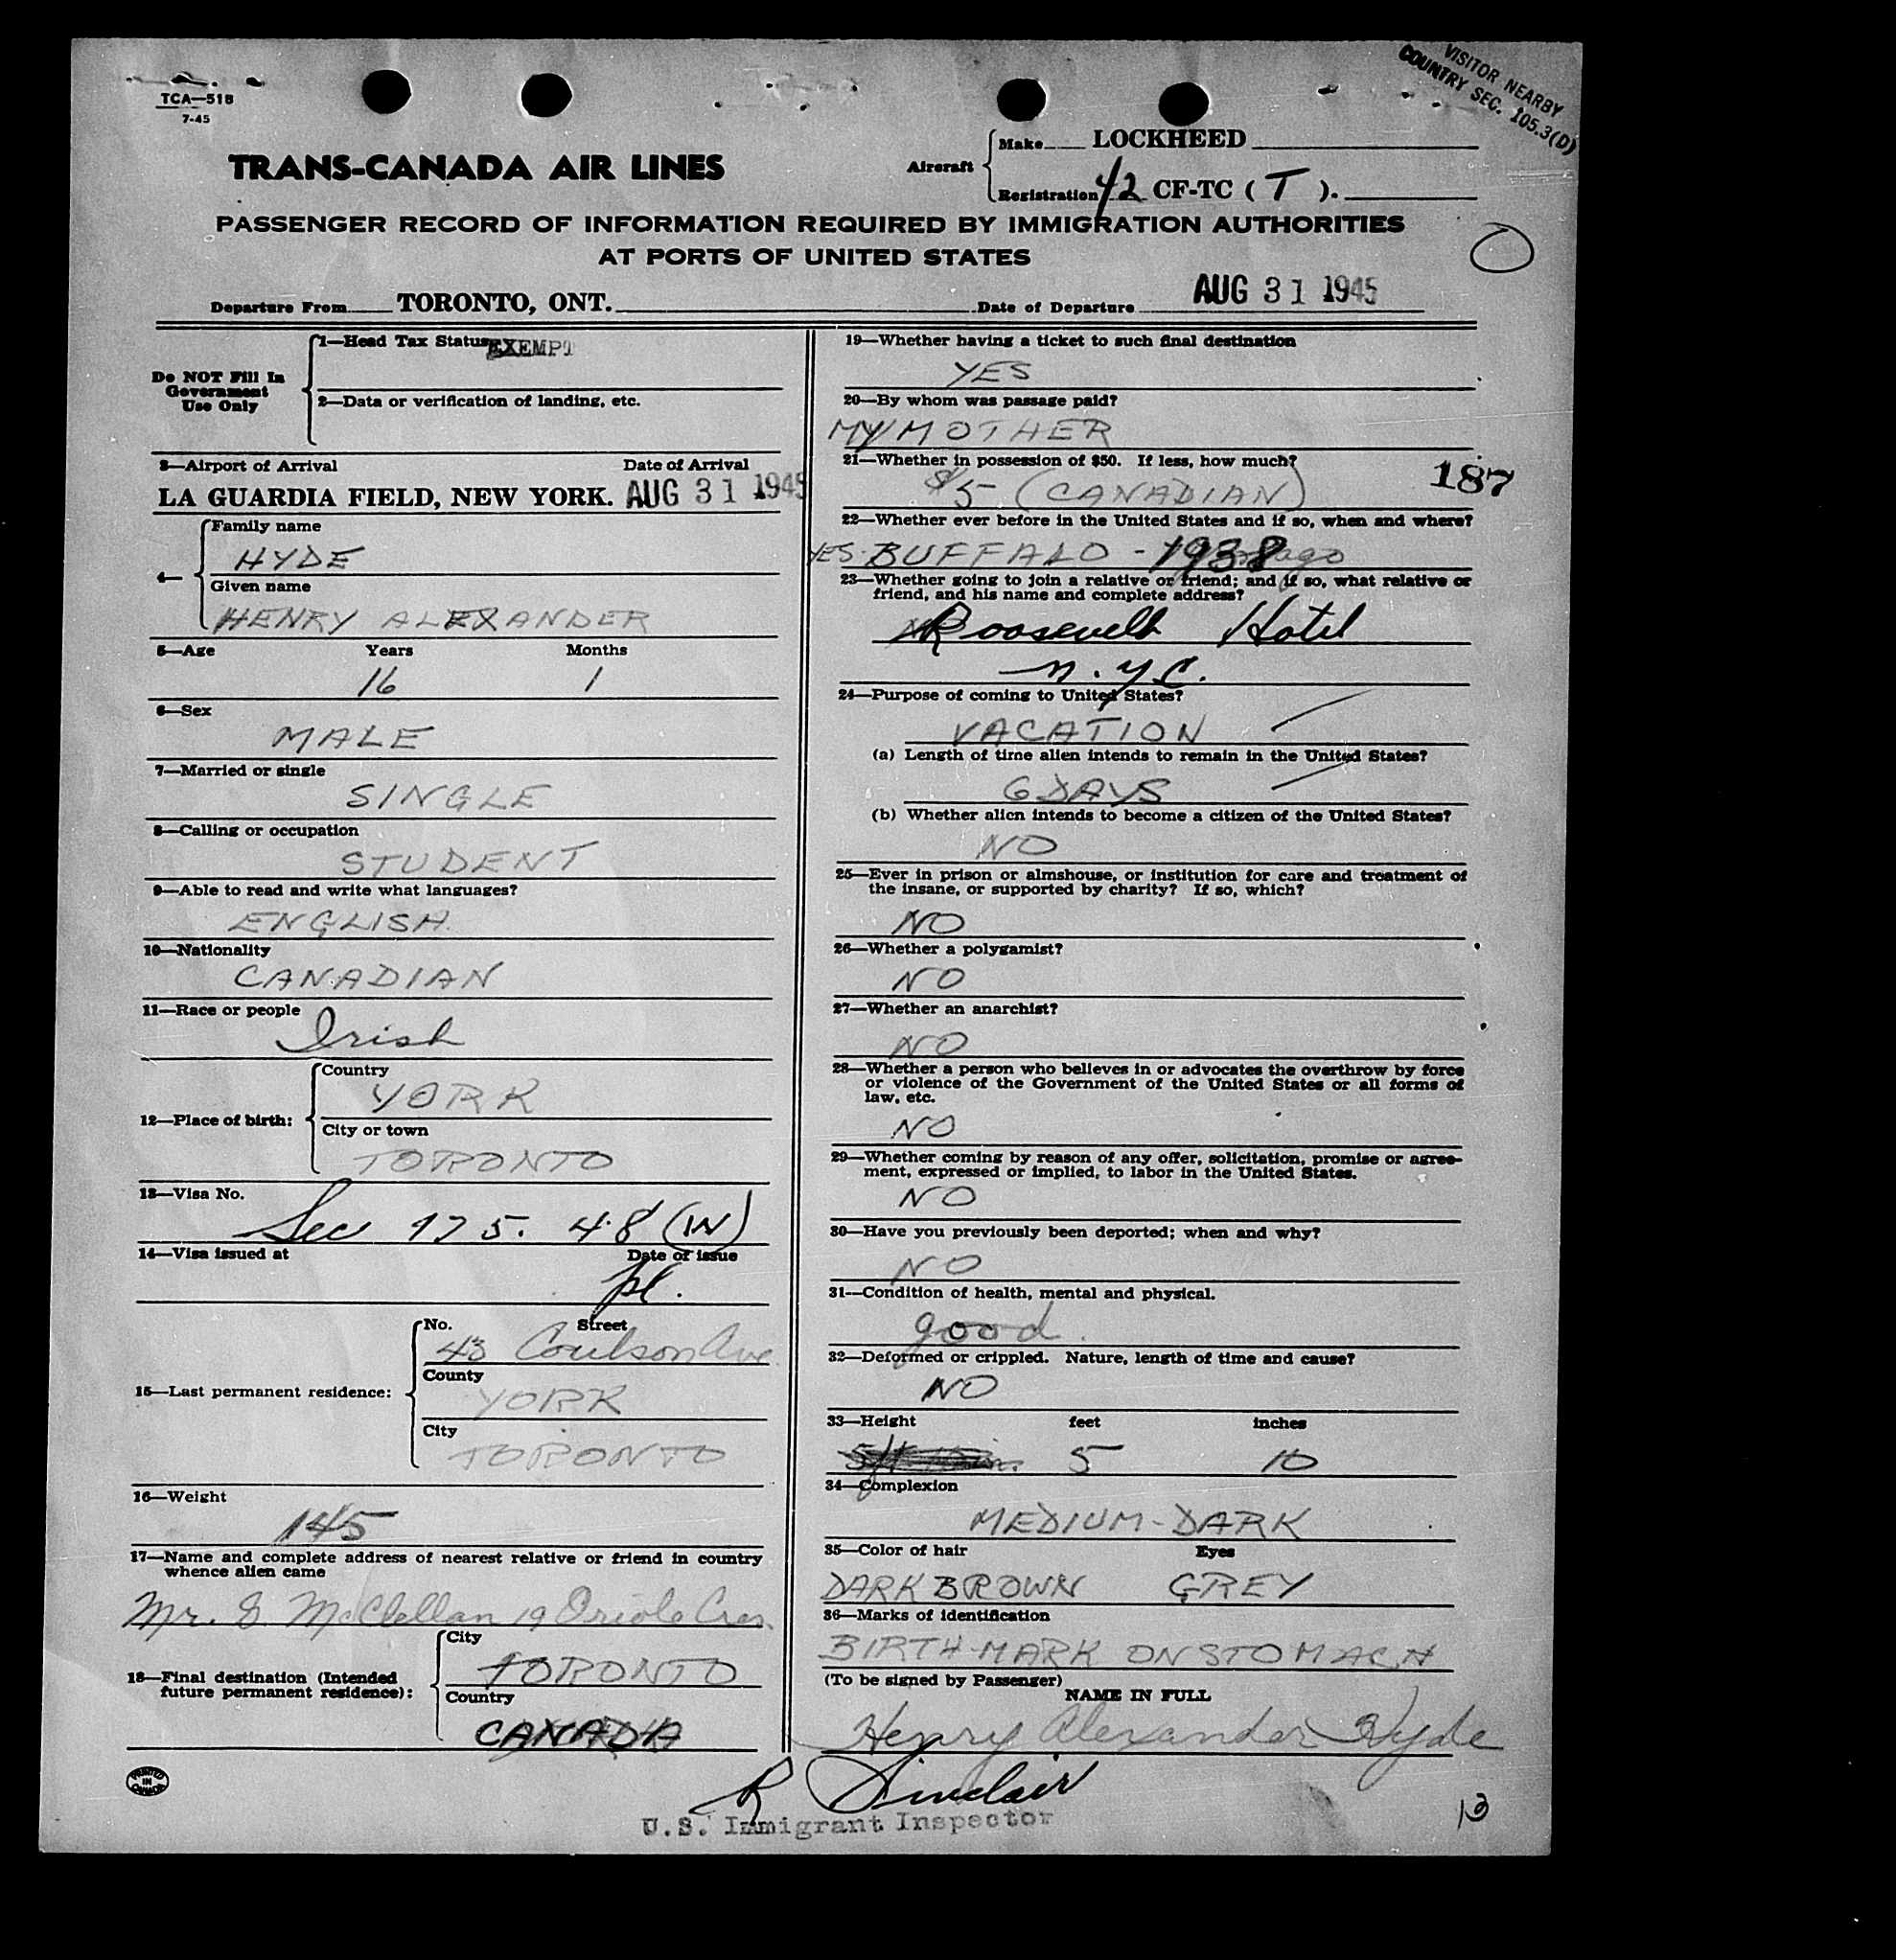 VISITOR NEARBY
COUNTRY SEC. 105.3(D)
TCA—518
7-45
TRANS-CANADA AIR LINES
Aircraft
Make LOCKHEED
Registration 42 CF-TC ( T ).
PASSENGER RECORD OF INFORMATION REQUIRED BY IMMIGRATION AUTHORITIES
AT PORTS OF UNITED STATES
Departure From TORONTO, ONT. Date of Departure AUG 31 1945
Do NOT Fill In
Government
Use Only
1—Head Tax Status EXEMPT
2—Data or verification of landing, etc.
3—Airport of Arrival Date of Arrival
LA GUARDIA FIELD, NEW YORK. AUG 31 1945
4—
Family name
HYDE
Given name
HENRY ALEXANDER
5—Age Years Months
16 1
6—Sex
MALE
7—Married or single
SINGLE
8—Calling or occupation
STUDENT
9—Able to read and write what languages?
ENGLISH
10—Nationality
CANADIAN
11—Race or people
Irish
12—Place of birth:
Country
YORK
City or town
TORONTO
13—Visa No.
Sec 175. 48 (W)
14—Visa issued at Date of issue
pl.
15—Last permanent residence:
No. Street
43 Coulson Ave.
County
YORK
City
TORONTO
16—Weight
145
17—Name and complete address of nearest relative or friend in country
whence alien came
Mr. S. McClellan 19 Oriole Cres.
18—Final destination (Intended
future permanent residence):
City
TORONTO
Country
CANADA
PRINTED
IN
CANADA
19—Whether having a ticket to such final destination
YES
20—By whom was passage paid?
MY MOTHER
21—Whether in possession of $50. If less, how much?
$5 (CANADIAN)
187
22—Whether ever before in the United States and if so, when and where?
YES. BUFFALO - 1938 ago
23—Whether going to join a relative or friend; and if so, what relative or
friend, and his name and complete address?
Roosevelt Hotel
N.Y.C.
24—Purpose of coming to United States?
VACATION
(a) Length of time alien intends to remain in the United States?
6 DAYS
(b) Whether alien intends to become a citizen of the United States?
NO
25—Ever in prison or almshouse, or institution for care and treatment of
the insane, or supported by charity? If so, which?
NO
26—Whether a polygamist?
NO
27—Whether an anarchist?
NO
28—Whether a person who believes in or advocates the overthrow by force
or violence of the Government of the United States or all forms of
law, etc.
NO
29—Whether coming by reason of any offer, solicitation, promise or agree-
ment, expressed or implied, to labor in the United States.
NO
30—Have you previously been deported; when and why?
NO
31—Condition of health, mental and physical.
good.
32—Deformed or crippled. Nature, length of time and cause?
NO
33—Height feet inches
5 10
34—Complexion
MEDIUM-DARK
35—Color of hair Eyes
DARK BROWN GREY
36—Marks of identification
BIRTH-MARK ON STOMACH
(To be signed by Passenger)
NAME IN FULL
Henry Alexander Hyde
R Sinclair
U.S. Immigrant Inspector
13